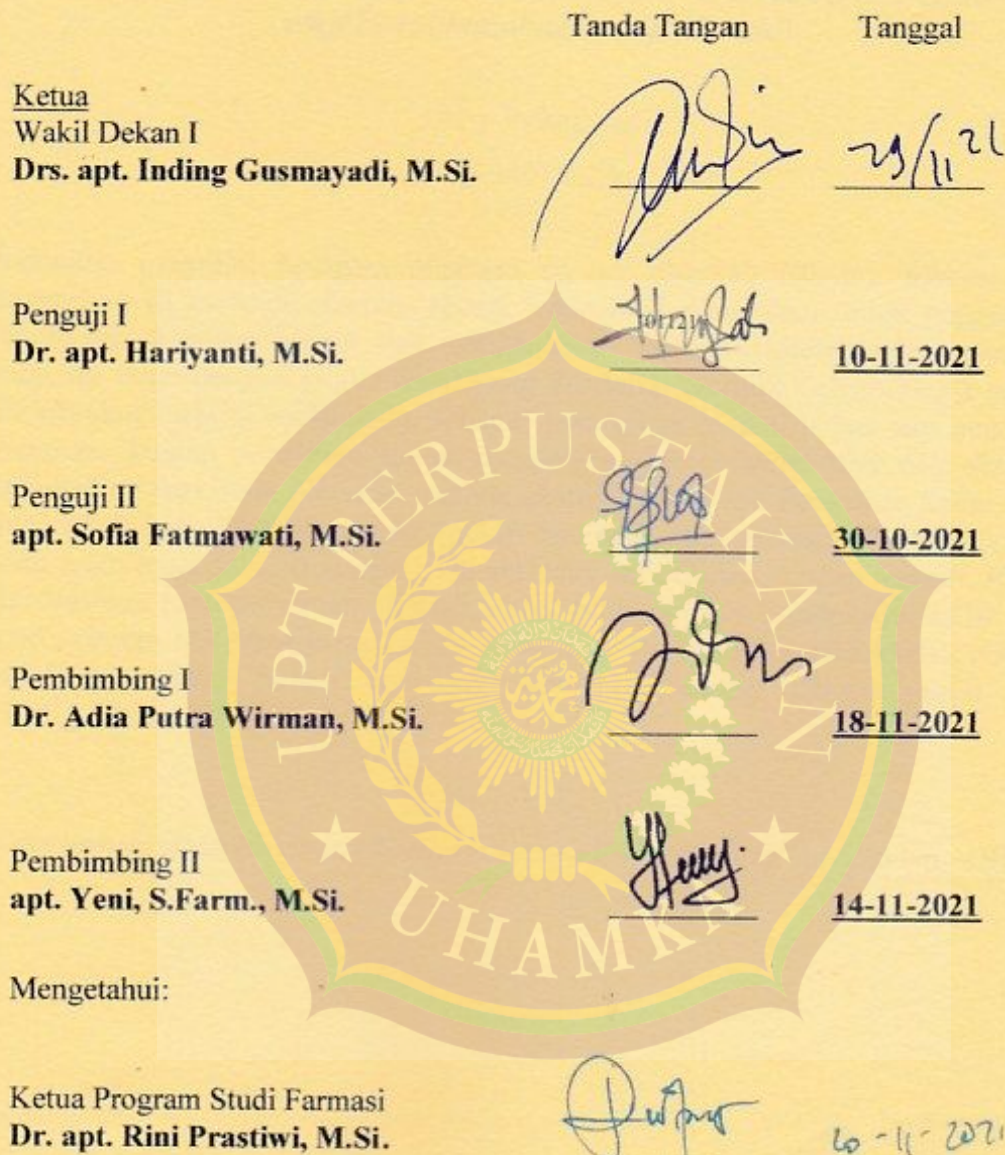 Tanda Tangan Tanggal
Ketua
Wakil Dekan I
Drs. apt. Inding Gusmayadi, M.Si. 29/11 21
Penguji I
Dr. apt. Hariyanti, M.Si. 10-11-2021
Penguji II
apt. Sofia Fatmawati, M.Si. 30-10-2021
Pembimbing I
Dr. Adia Putra Wirman, M.Si. 18-11-2021
Pembimbing II
apt. Yeni, S.Farm., M.Si. 14-11-2021
Mengetahui:
Ketua Program Studi Farmasi
Dr. apt. Rini Prastiwi, M.Si. -11-2021
UPT PERPUSTAKAAN
UHAMKA